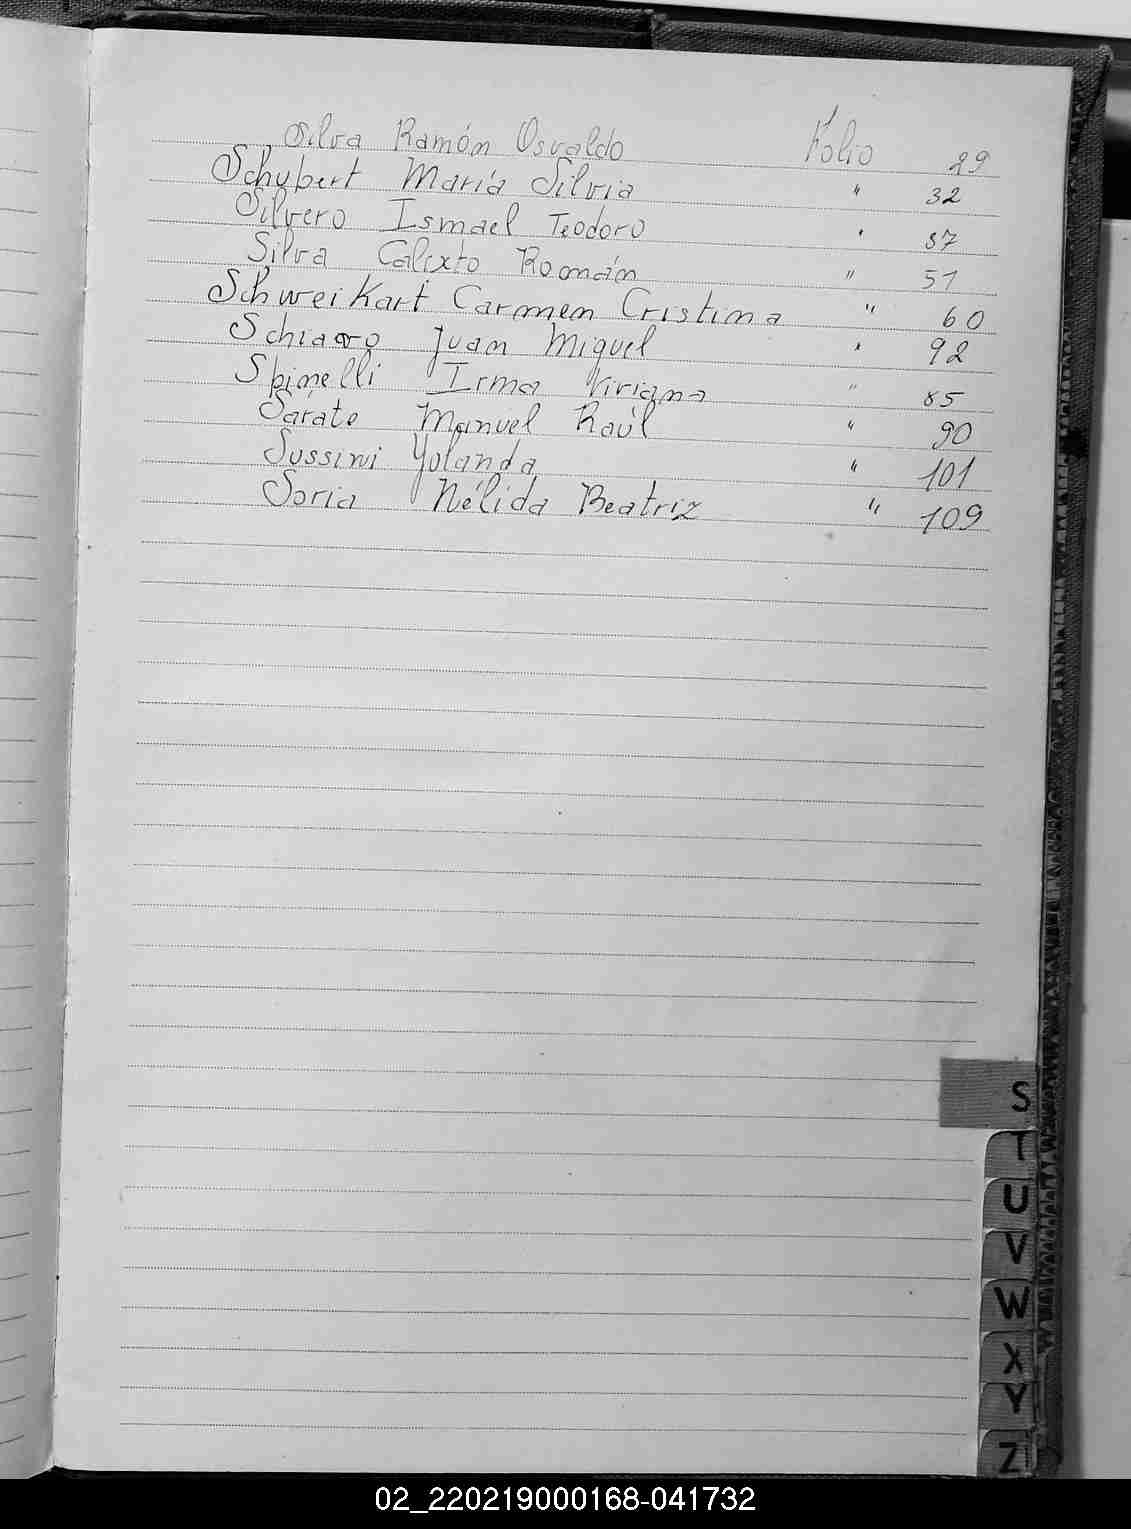 Silva Ramón Osvaldo Folio 29
Schubert María Silvia " 32
Silvero Ismael Teodoro " 37
Silva Calixto Román " 51
Schweikart Carmen Cristina " 60
Juan Miguel " 92
Spinelli Irma Viviana " 85
Sarate Manuel Raúl " 90
Sussini Yolanda " 101
Soria Nélida Beatriz " 109
S
T
U
V
W
X
Y
Z
02_220219000168-041732